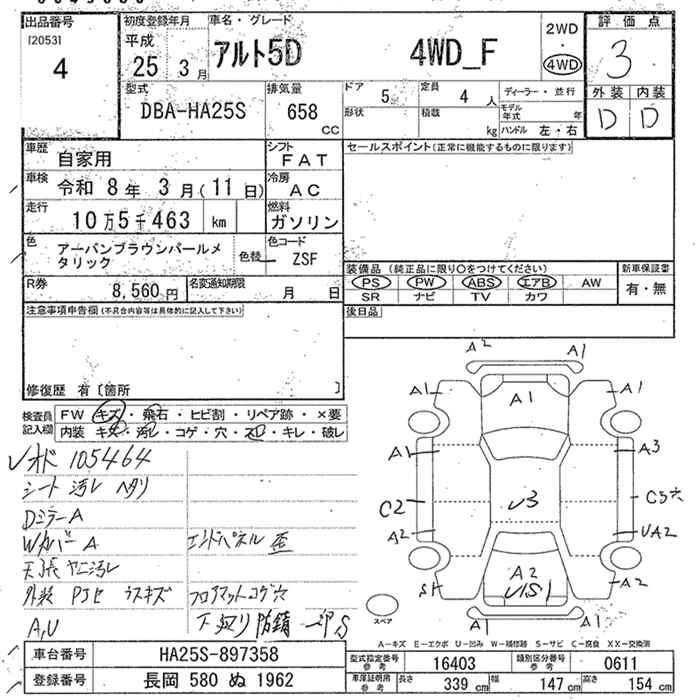 出品番号
[2053]
4
初度登録年月
平成
25 3月
車名・グレード
アルト5D 4WD_F
2WD
・
4WD
評価点
3
外装 内装
D D
型式
DBA-HA25S
排気量
658
CC
ドア
5
定員
4 人
形状
積載
kg
ディーラー・並行
モデル年式 年
ハンドル 左・右
車歴
自家用
シフト
FAT
車検
令和 8年 3月(11日)
冷房
AC
走行
10万5千463 km
燃料
ガソリン
色
アーバンブラウンパールメタリック
色替
色コード
ZSF
R券
8,560円
名変通知期限
月 日
セールスポイント(正常に機能するものに限ります)
装備品(純正品に限り○をつけてください)
PS PW ABS エアB AW
SR ナビ TV カワ
新車保証書
有・無
後日品
注意事項申告欄(不具合内容等は具体的に記入して下さい)
修復歴 有〔箇所 〕
検査員記入欄
FW キズ・飛石・ヒビ割・リペア跡・×要
内装 キズ・汚レ・コゲ・穴・スレ・キレ・破レ
105464
シート 汚レ ヘタリ
DミラーA
Wカバー A
エンドパネル 歪
天張 ヤニ汚レ
外装 PJセ ウスキズ
フロアマットコゲ穴
A,U
下廻り防錆
A2
A1
A1
A1
A1
A1
A3
C2
U3
C3穴
A2
UA2
S1
A2
U1S1
A2
A1
A1
スペア
A-キズ E-エクボ U-凹み W-補修跡 S-サビ C-腐食 XX-交換済
車台番号
HA25S-897358
登録番号
長岡 580 ぬ 1962
型式指定番号
参考
16403
類別区分番号
参考
0611
車庫証明用
参考
長さ 339 cm
幅 147 cm
高さ 154 cm